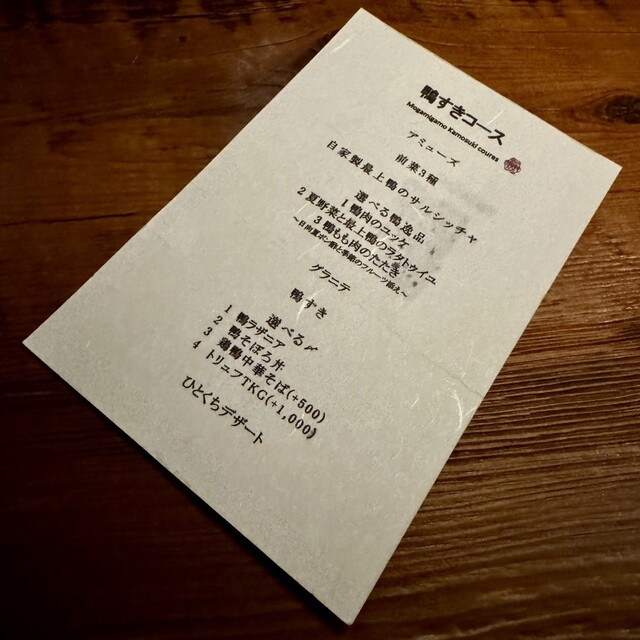 鴨すきコース
Mogamigamo Kamosuki coures
アミューズ
前菜3種
自家製最上鴨のサルシッチャ
選べる鴨逸品
1 鴨肉のユッケ
2 夏野菜と最上鴨のラタトゥイユ
3 鴨もも肉のたたき
グラニテ
鴨すき
選べる〆
1 鴨ラザニア
2 鴨そぼろ丼
3 鶏鴨中華そば(+500)
4 トリュフTKG(+1,000)
ひとくちデザート